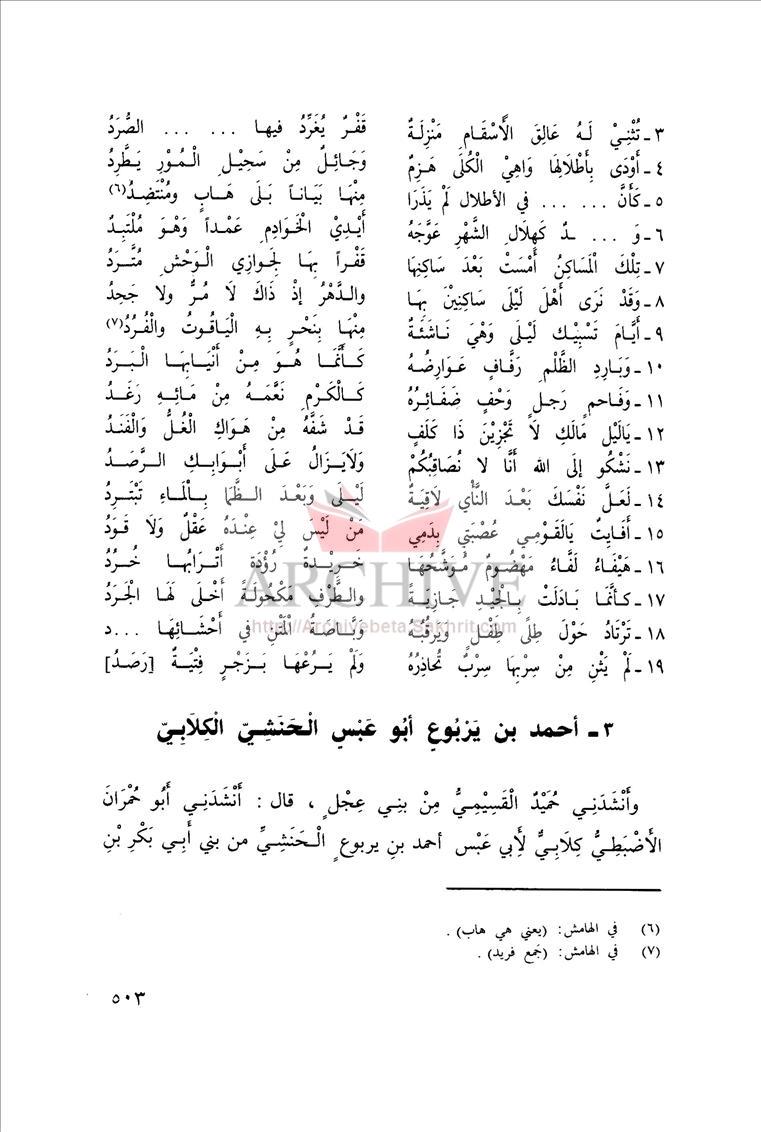 ٣ ـ تُثْنِيْ لَـهُ عَالِقَ الأَسْقَـامِ مَنْزِلَـةٌ قَفْـرٌ يُغَـرِّدُ فيهـا ... ... الصُّرَدُ
٤ ـ أَوْدَى بِأَطْلَالِهَا وَاهِيْ الْكُلَى هَـزِمٌ وَجَائِـلٌ مِـنْ سَحِيْـلِ الْـمُـوْرِ يَـطَّـرِدُ
٥ ـ كَأَنَّ ... ... في الأطلال لَمْ يَذَرَا مِنْهَـا بَيَـانـاً بَلَـى هَـابٍ ومُنْتَضِـدُ(٦)
٦ ـ وَ ... ـدٌ كَهِلَالِ الشَّهْرِ عَوَّجَهُ أَيْدِيْ الْخَـوَادِمِ عَمْـداً وَهْـوَ مُلْتَبِـدُ
٧ ـ تِلْكَ الْمَسَاكِنُ أَمْسَتْ بَعْدَ سَاكِنِهَا قَفْـراً بِهَـا لِجَوازِي الْـوَحْشِ مُتَّـرَدُ
٨ ـ وَقَدْ نَرَى أَهْلَ لَيْلَى سَاكِنِيْنَ بِهَا والدَّهْرُ إِذْ ذَاكَ لَا مُـرٌّ ولا جَحِدُ
٩ ـ أَيَّـامَ تَسْبِيْـك لَيْلَى وَهْيَ نَـاشِئَـةٌ مِنْهَـا بِنَحْـرٍ بِـهِ الْيَاقُوتُ والْفُرُدُ(٧)
١٠ ـ وَبَـارِدِ الظَّلْمِ رَفَّـافٍ عَـوَارِضُـهُ كَـأَنَّمَـا هُــوَ مِـنْ أَنْيَـابِـهَـا الْـبَـرَدُ
١١ ـ وَفَـاحمٍ رَجِـلٍ وَحْفٍ ضَفَـائِـرُهُ كَـالْـكَـرْمِ نَعَّمَـهُ مِـنْ مَـائِـهِ رَغَـدُ
١٢ ـ يَالَيْلَ مَالَكِ لَا تَجْزِيْنَ ذَا كَلَفٍ قَـدْ شَفَّـهُ مِـنْ هَـوَاكِ الْغُـلُّ والْفَنَـدُ
١٣ ـ نَشْكُو إِلَى الله أَنَّا لا نُصَاقِبُكُمْ ولَايَـزَالُ عَلَـى أَبْـوَابِـكِ الـرَّصَـدُ
١٤ ـ لَعَلَّ نَفْسَكَ بَعْـدَ النَّأْيِ لَاقِيَةٌ لَيْـلَى وَبَعْـدَ الظَّـمَا بِـالْمَـاءِ تَبْتَـرِدُ
١٥ ـ أَفَانِيتُ يَالَقَوْمِي عُصْبَتي بِدَمِي مَنْ لَيْسَ لِيْ عِنْدَهُ عَقْلٌ وَلَا قَوَدُ
١٦ ـ هَيْفَاءُ لَفَّاءُ مَهْضُومٌ مُوَشَّحُهَا خَـرِيْـدَةٌ رُؤْدَةٍ أَتْـرَابُهـا خُـرُدُ
١٧ ـ كـأَنَّمَا بَـادَلَتْ بِـالْجِيْدِ جَازِيَـةً والطَّرْفِ مَكْحُولَةً أَخْلَى لَهَا الْجَرَدُ
١٨ ـ تَرْتَادُ حَوْلَ طِلًى طِفْلٍ وَيَرْقُبُـهُ وَبَـاضَـةُ الْمَتْنِ في أَحْشَـائِهَـا ...د
١٩ ـ لَمْ يَثْنِ مِنْ سِرْبِهَا سِرْبٌ تُحَاذِرُهُ وَلَمْ يَـرُعْهَا بِـزَجْرٍ فِتْيَـةٌ [رَصَدُ]
ARCHIVE
http://Archivebeta.Sakhrit.com
٣ ـ أحمد بن يَرْبُوعٍ أبُو عَبْسٍ الْحَنَشِـيّ الْكِلَابِـيّ
وأَنْشَدَنِـي حُمَيْدٌ الْقَسِيْمِـيُّ مِنْ بنِـي عِجْلٍ ، قال : أَنْشَدَنِـي أَبُو حُمْرَانَ
الأَضْبَطِـيُّ كِلَابِـيٌّ لِأَبِي عَبْسٍ أحمد بنِ يربوعٍ الْـحَنَشِـيِّ من بني أَبِـي بَكْرِ بْنِ
(٦) في الهامش: (يعني هي هاب) .
(٧) في الهامش: (جَمع فريد) .
٥٠٣